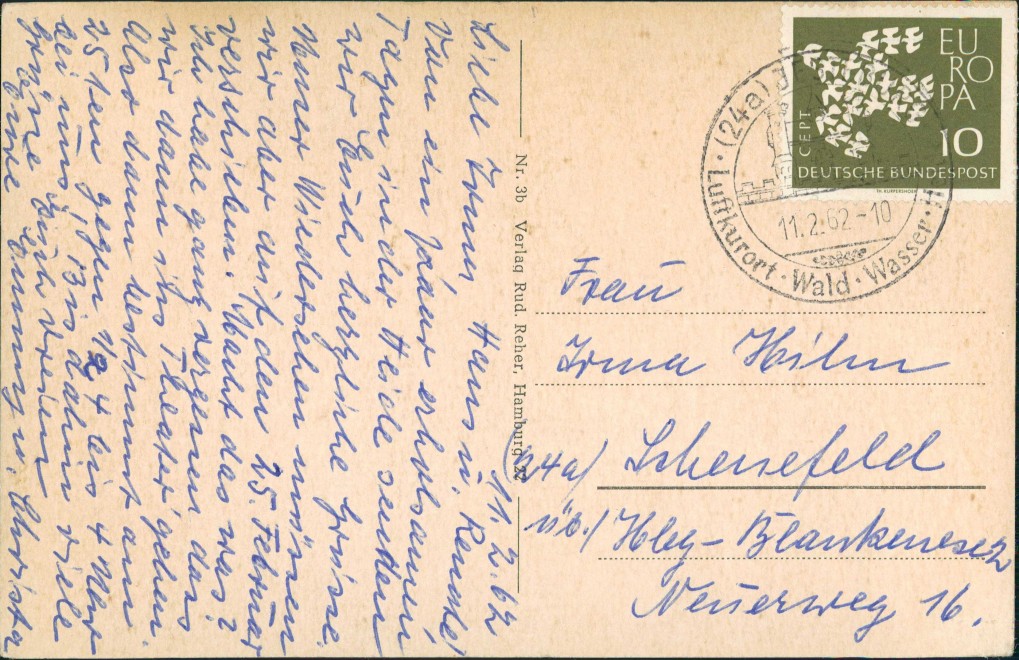 11.2.62
Liebe Irma, Hans u. Renate!
Von ein paar erholsamen
Tagen in der Heide senden
wir Euch herzliche Grüsse.
Unser Wiedersehen müssen
wir aber auf den 25. Februar
verschieben. Macht das was?
Ich habe ganz vergessen das
wir dann ins Theater gehen.
Also dann bestimmt am
25ten gegen 1/2 4 bis 4 Uhr
bei uns. Bis dahin viele
Grüsse Euch dreien
Eure Emmy u. Christa
Nr. 3b Verlag Rud. Reher, Hamburg 22
EU
RO
PA
CEPT
10
DEUTSCHE BUNDESPOST
(24a) JE
Luftkurort · Wald · Wasser · H
11.2.62-10
Frau
Irma Hilm
24a) Schenefeld
üb./ Hbg-Blankenese 2
Neuerweg 16.